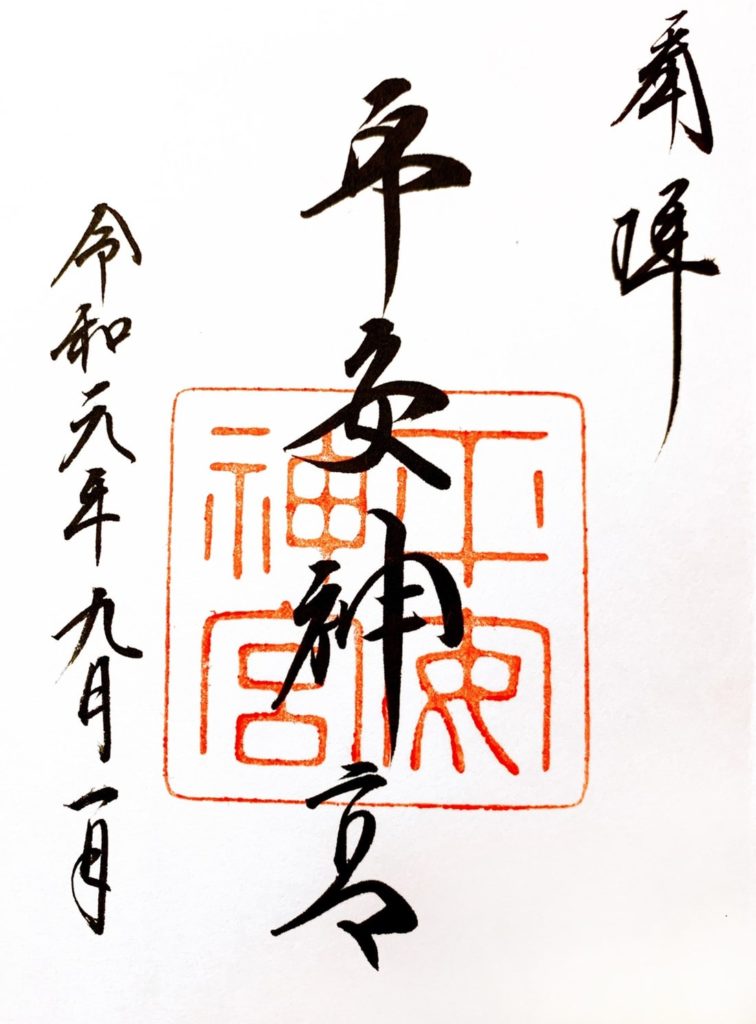 奉拝
平安神宮
平安神宮
令和元年九月一日